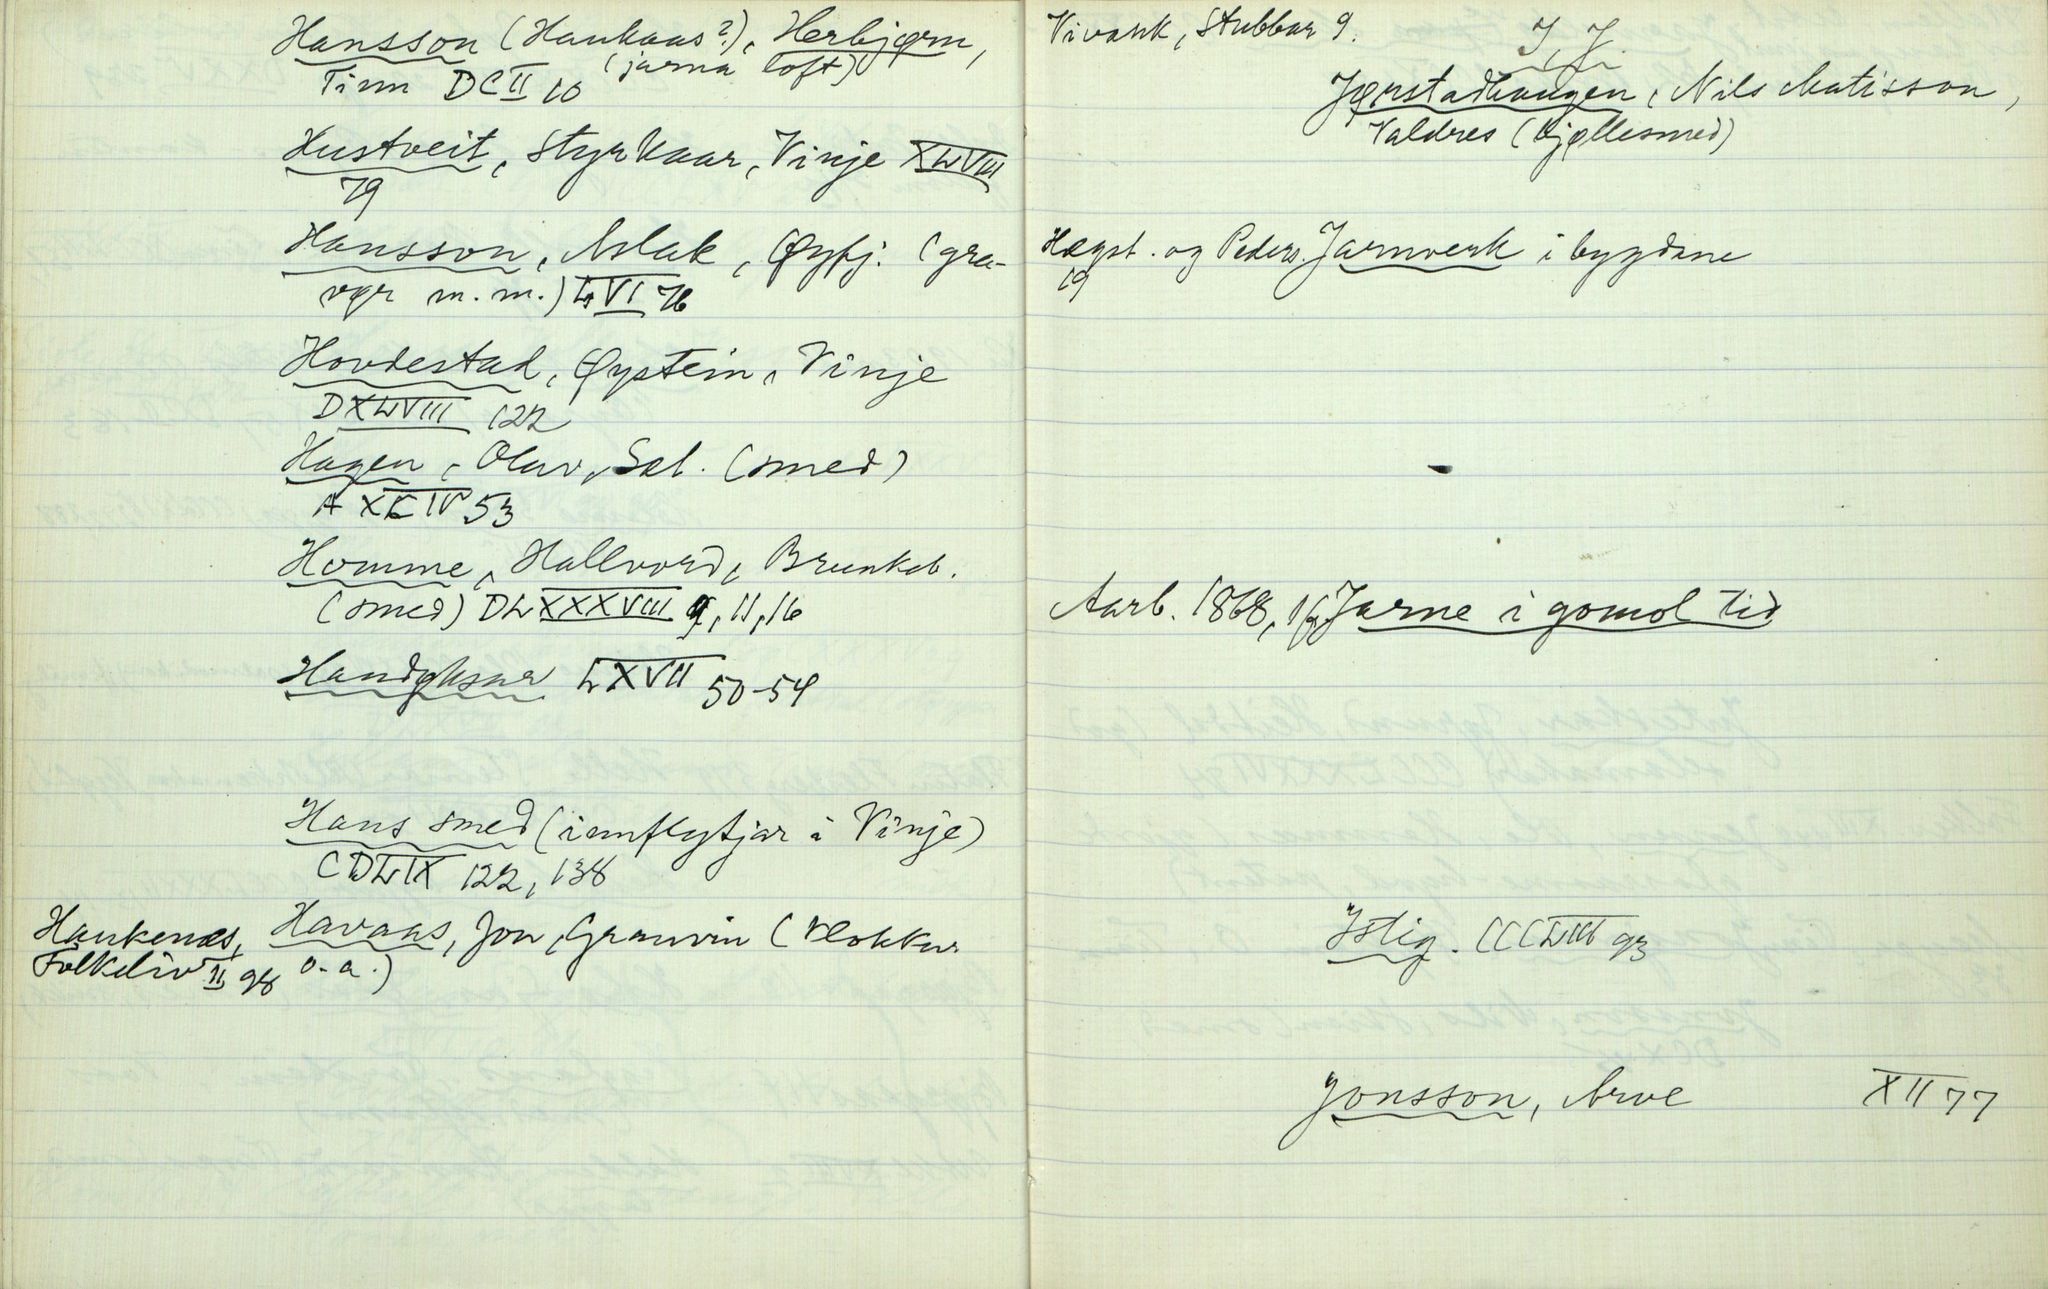 Hansson (Haukaas?), Herbjørn,
Tinn DCII 10 (jarna loft)
Hustveit, Styrkaar, Vinje XLVIII
79
Hansson, Aslak, Øyfj. (gra-
vør m.m.) LVI 76
Hovdestad, Øystein, Vinje
DXLVIII 122
Hagen, Olav, Sel. (smed)
A XCIV 53
Homme, Hallvord, Brunkeb.
(smed) DLXXXVIII 9, 11, 16
Handøksar LXVII 50-54
Hans smed (innflytjar i Vinje)
CDLIX 122, 138
Haukenæs, Havaas, Jon, Granvin (klokkur
Folkeliv II 98 o.a.)
Vivask, Stubbar 9.
I, J.
Jørstadhaugen, Nils Matisson,
Valdres (bjøllesmed)
Hægst. og Peders. Jarnverk i bygdene
19
Aarb. 1868, 16 Jarne i gomol tid
Istig. CCCLIII 93
Jonsson, Arve XII 77